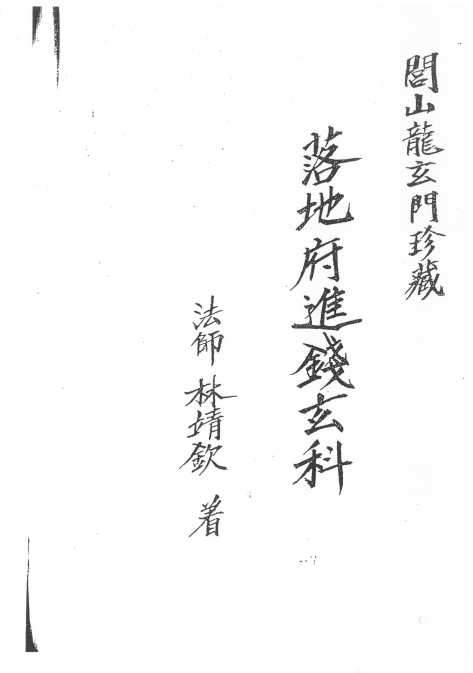 閭山龍玄門珍藏
落地府進錢玄科
法師 林靖欽 着